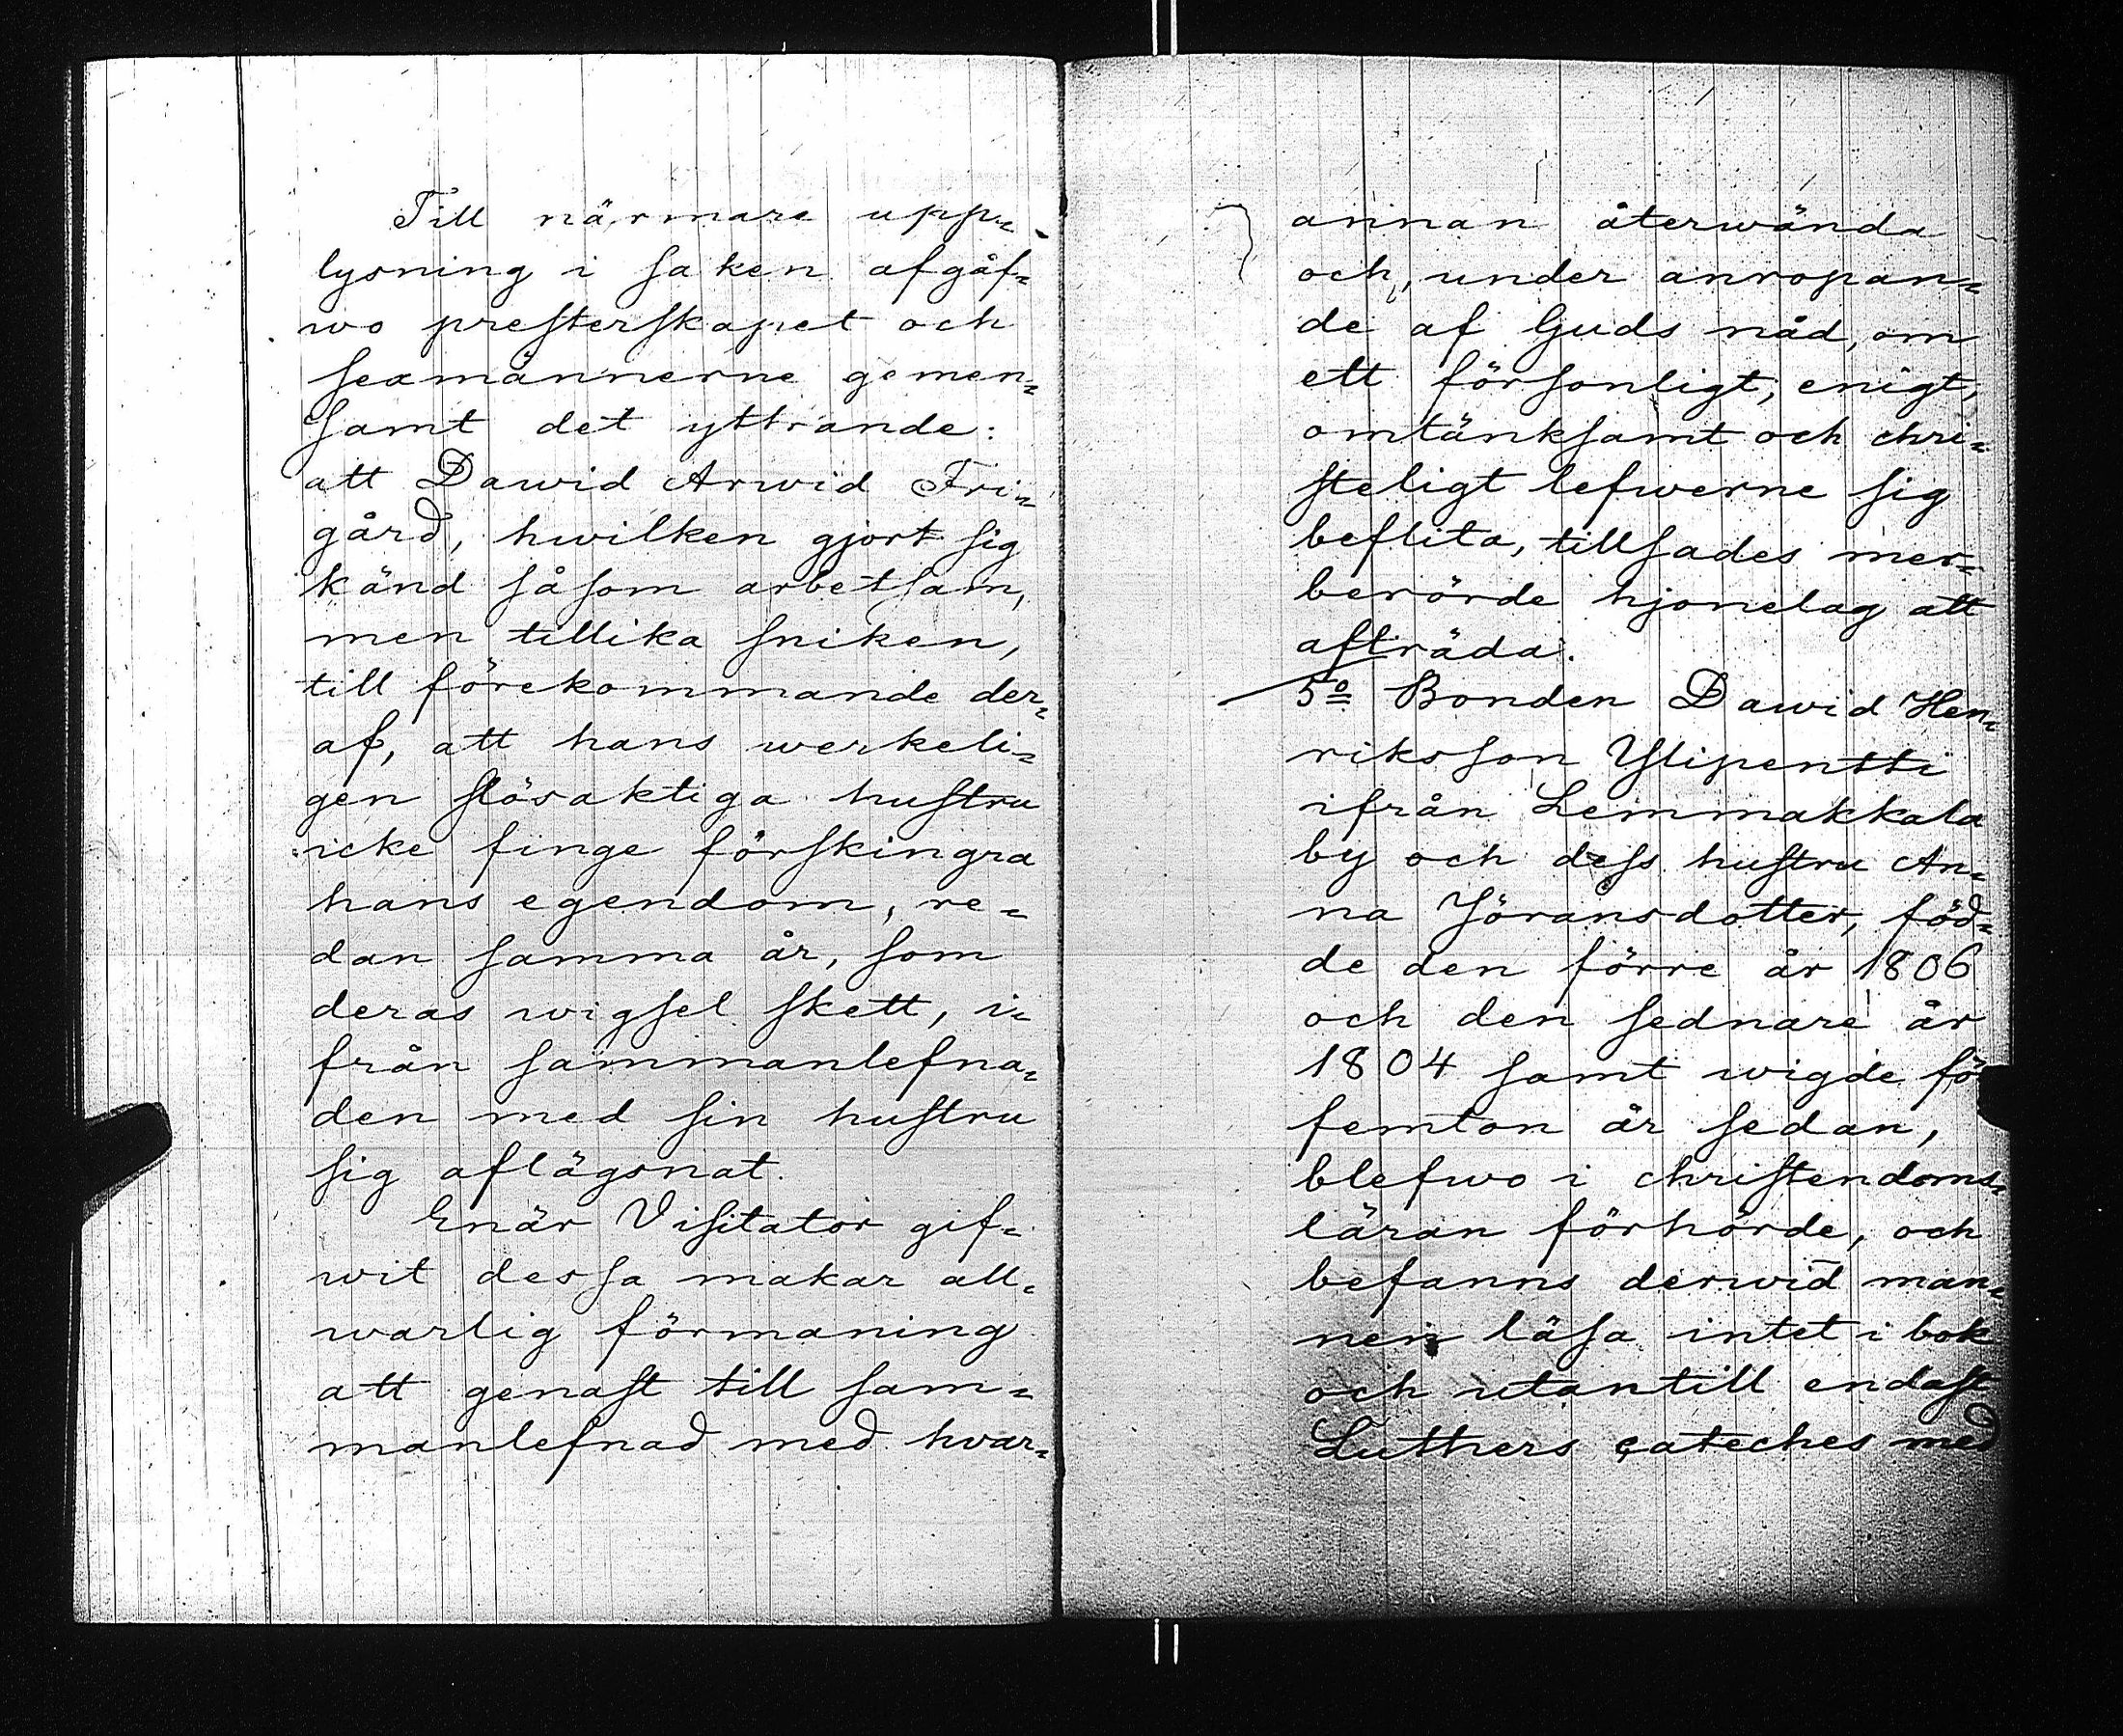 Till närmare upp-
lysning i saken afgåf-
wo presterskapet och
sexmännerne gemen-
samt det yttrande:
att Dawid Arwid Fri-
gård, hwilken gjort sig
känd såsom arbetsam,
men tillika sniken,
till förekommande der-
af, att hans werkeli-
gen slösaktiga hustru
icke finge förskingra
hans egendom, re-
dan samma år, som
deras wigsel skett, i-
från sammanlefna-
den med sin hustru
sig aflägsnat.
Enär Visitator gif-
wit dessa makar all-
warlig förmaning
att genast till sam-
manlefnad med hvar-
annan återwända
och, under anropan-
de af Guds nåd, om
ett försonligt, enigt,
omtänksamt och chri-
steligt lefwerne sig
beflita, tillsades mer-
berörde hjonelag att
afträda.
5o Bonden Dawid Hen-
riksson Ylipentti
ifrån Lemmakkala
by och dess hustru An-
na Jöransdotter, föd-
de den förre år 1806
och den sednare år
1804 samt wigde fö
femton år sedan,
blefwo i christendoms-
läran förhörde, och
befanns derwid man-
nen läsa intet i bok
och utantill endast
Luthers cateches med